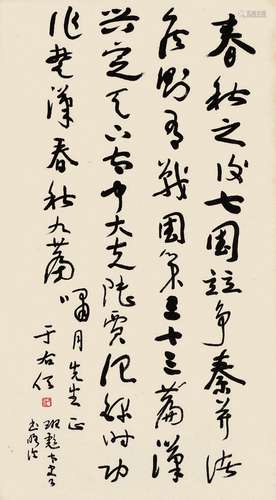 春秋之後七國竝爭秦并諸
侯則有戰國策三十三篇漢
興定天下太中大夫陸賈記錄時功
作楚漢春秋九篇
嘯月先生正
于右任
班彪